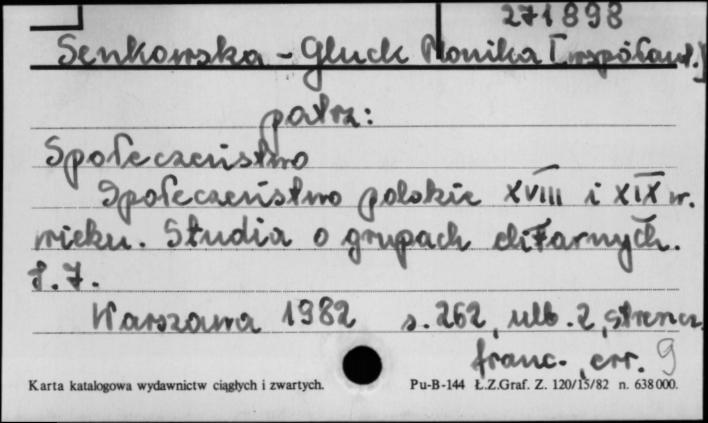 271898
Senkowska-Gluck Monika [współaut.]
patrz:
Społeczeństwo
Społeczeństwo polskie XVIII i XIX w.
wieku. Studia o grupach elitarnych.
T. 7.
Warszawa 1982 s. 262, nlb. 2, streszcz.
franc., err. 9
Karta katalogowa wydawnictw ciągłych i zwartych. Pu-B-144 Ł.Z.Graf. Z. 120/15/82 n. 638000.